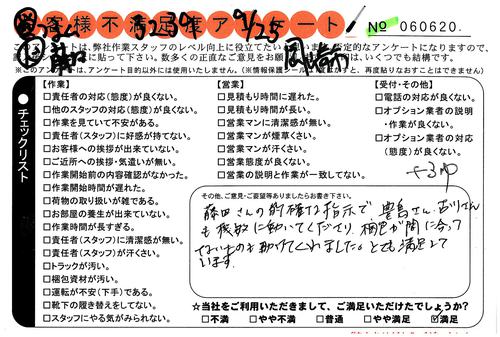 お客様不満足度アンケート
5239
9/25
No 060620
このアンケートは、弊社作業スタッフのレベル向上に役立てたい
否定的なアンケートになりますので、
に貼って下さい。数多くの正直なご意見をお
いくつでも結構です。
(※このアンケートは、アンケート目的以外には使用いたしません。(※情報保護シール
再度貼りなおすことはできません)
●チェックリスト
【作業】
□責任者の対応(態度)が良くない。
□他のスタッフの対応(態度)が良くない。
□作業を見ていて不安がある。
□責任者(スタッフ)に好感が持てない。
□お客様への挨拶が出来ていない。
□ご近所への挨拶・気遣いが無い。
□作業開始前の内容確認がなかった。
□作業開始時間が遅れた。
□荷物の取り扱いが雑である。
□お部屋の養生が出来ていない。
□作業時間が長すぎる。
□責任者(スタッフ)に清潔感が無い。
□責任者(スタッフ)が汗くさい。
□トラックが汚い。
□梱包資材が汚い。
□運転が不安(下手)である。
□靴下の履き替えをしてない。
□スタッフにやる気がみられない。
【営業】
□見積もり時間に遅れた。
□見積もり時間が長い。
□営業マンに清潔感が無い。
□営業マンが煙草くさい。
□営業マンが汗くさい。
□営業態度が良くない。
□営業の説明と作業が一致してない。
【受付・その他】
□電話の対応が良くない。
□オプション業者の説明
・作業が良くない。
□オプション業者の対応
(態度)が良くない。
その他、ご意見・ご要望等ありましたらお書き下さい。
藤田さんの的確な指示で、豊島さん、古川さん
も機敏に動いてくださり、梱包が間に合って
ないものも助けてくれました。とても満足して
います。
☆当社をご利用いただきまして、ご満足いただけたでしょうか?
□不満 □やや不満 □普通 □やや満足 ☑満足